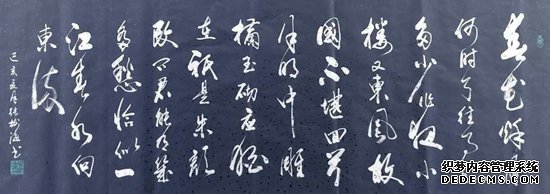 春花秋
何时了往事
多少昨夜小
楼又東風故
國不堪回首
月明中雕
欄玉砌应猶
在祇是朱颜
改问君能有几
多愁恰似一
江春水向
東流
己亥
织梦内容管理系统
DEDECMS.COM